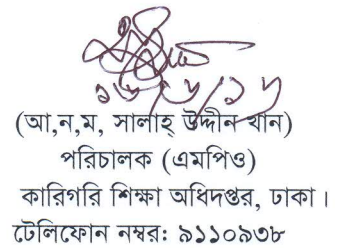 ১৬/৬/১৬
(আ,ন,ম, সালাহ্ উদ্দীন খান)
পরিচালক (এমপিও)
কারিগরি শিক্ষা অধিদপ্তর, ঢাকা।
টেলিফোন নম্বর: ৯১১০৯৩৮